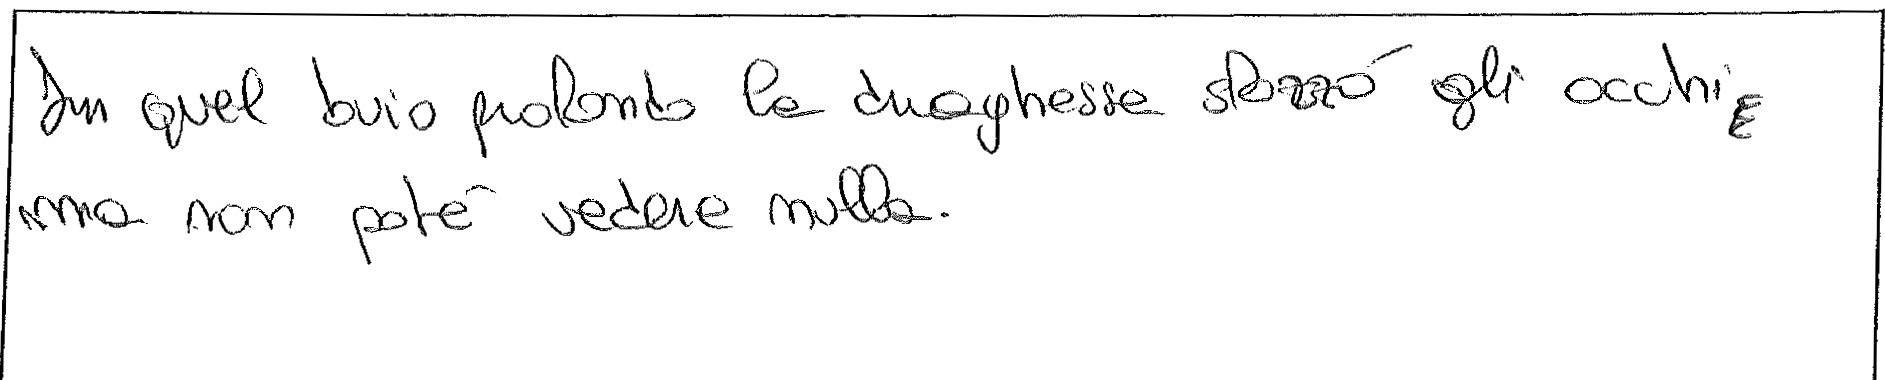 In quel buio profondo la draghessa sforzò gli occhi,
ma non poté vedere nulla.